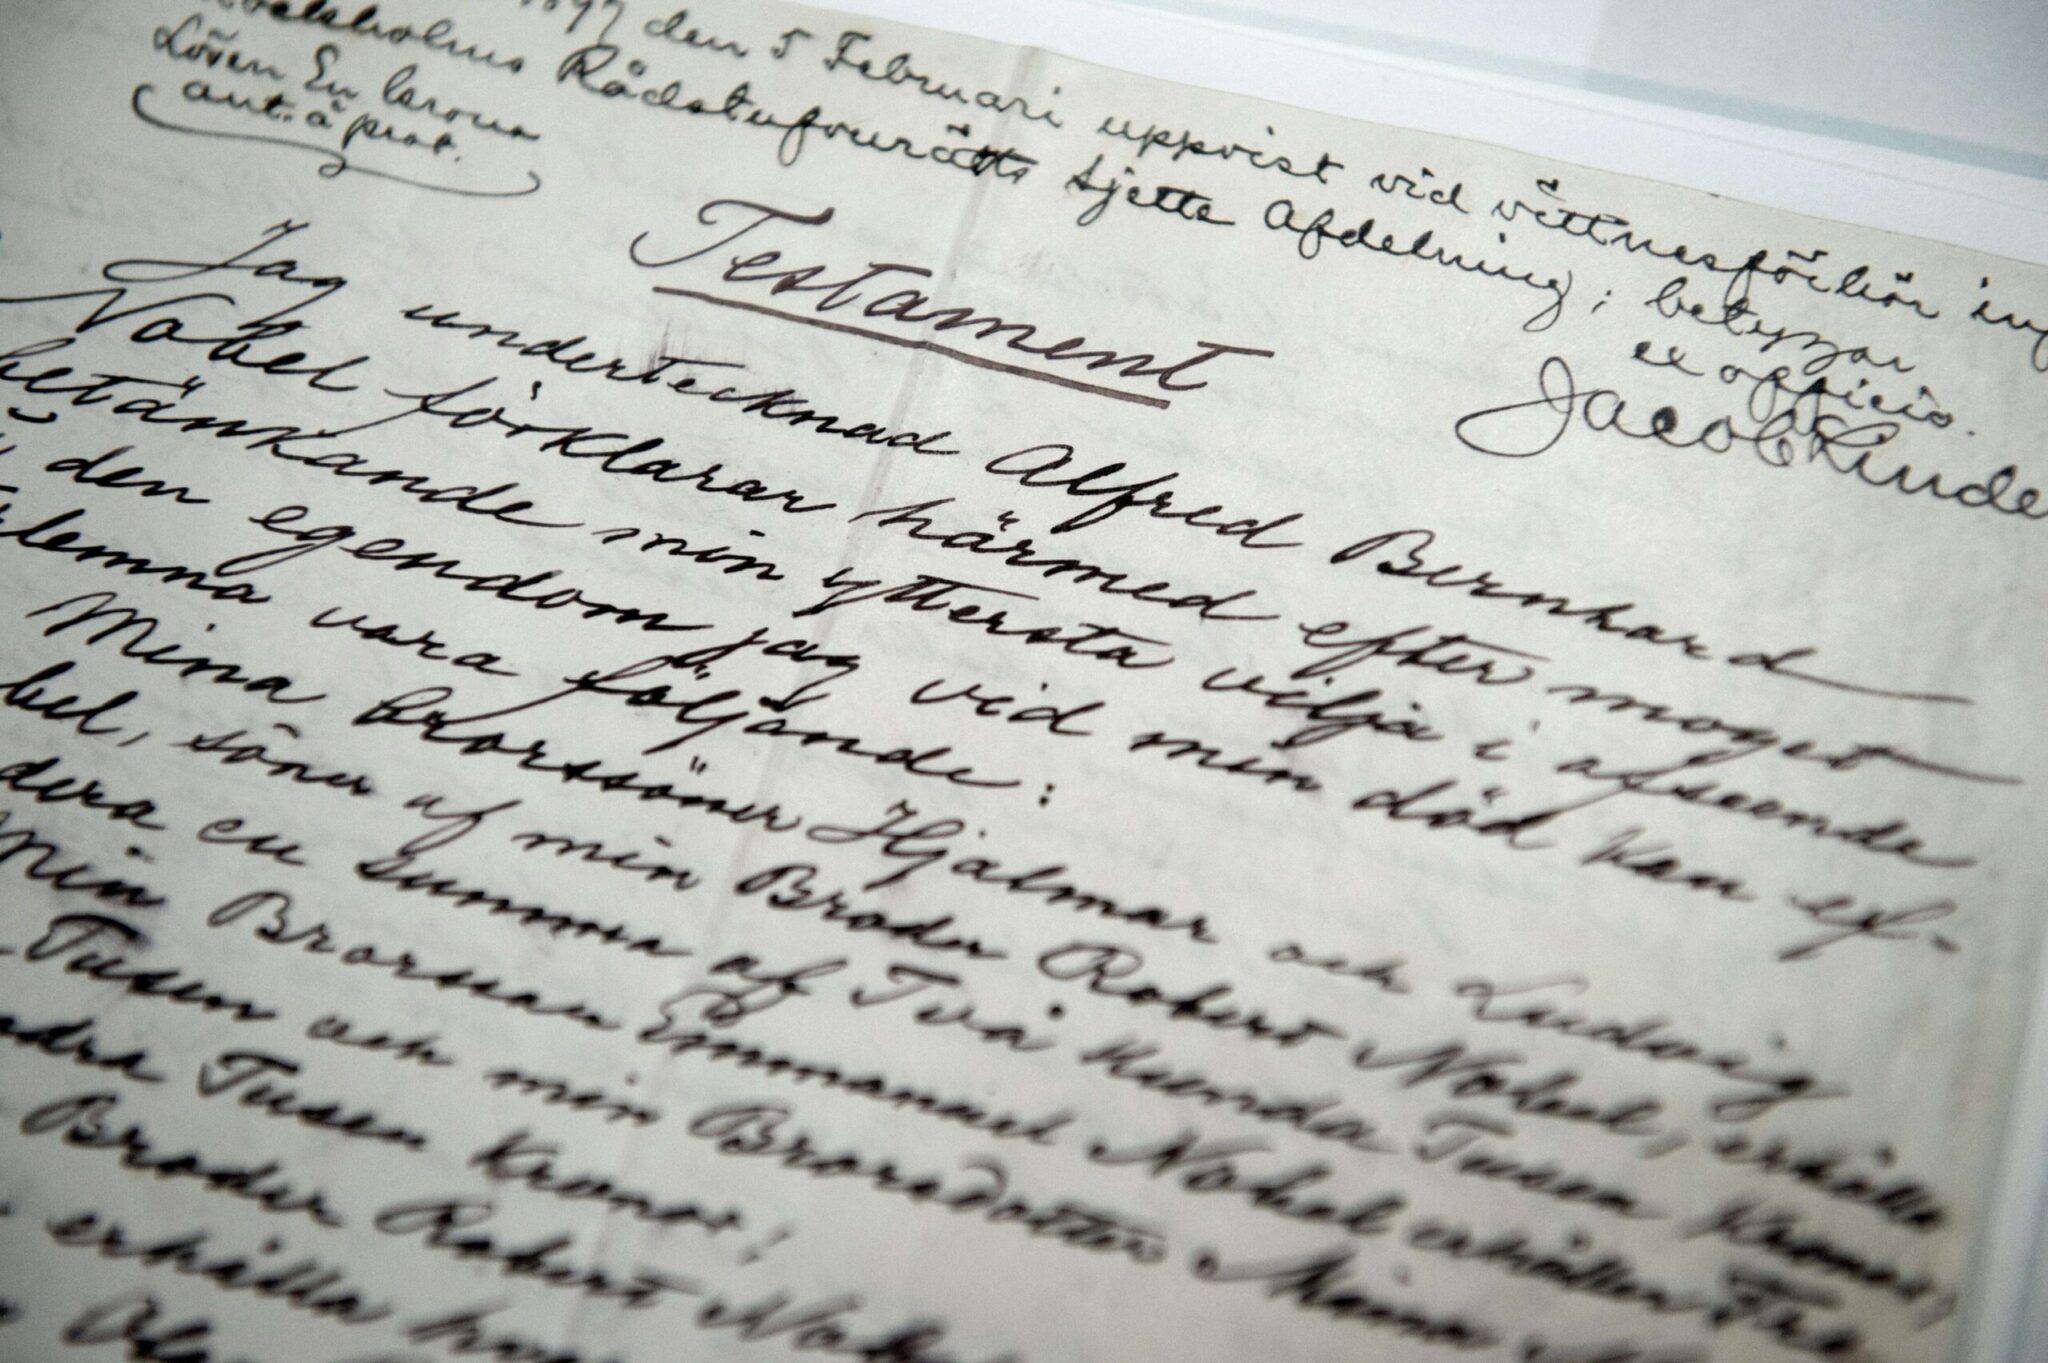 1897 den 5 Februari uppvist vid vittnesförhör inf
Stockholms Rådstufvurätts sjette Afdelning; betygar
Lösen En krona
ex officio.
ant. å prot.
Jacob Linde
Testament
Jag undertecknad Alfred Bernhard
Nobel förklarar härmed efter moget
betänkande min yttersta vilja i afseende
å den egendom jag vid min död kan ef-
terlemna vara följande:
Mina Brorssöner Hjalmar och Ludvig
bel, söner af min Broder Robert Nobel, erhålla
dera en summa af Två Hundra Tusen Kronor;
Min Brorson Emmanuel Nobel erhåller Tre
Tusen och min Brorsdotter Mina
ndra Tusen Kronor;
Broder Robert Nob
erhålla